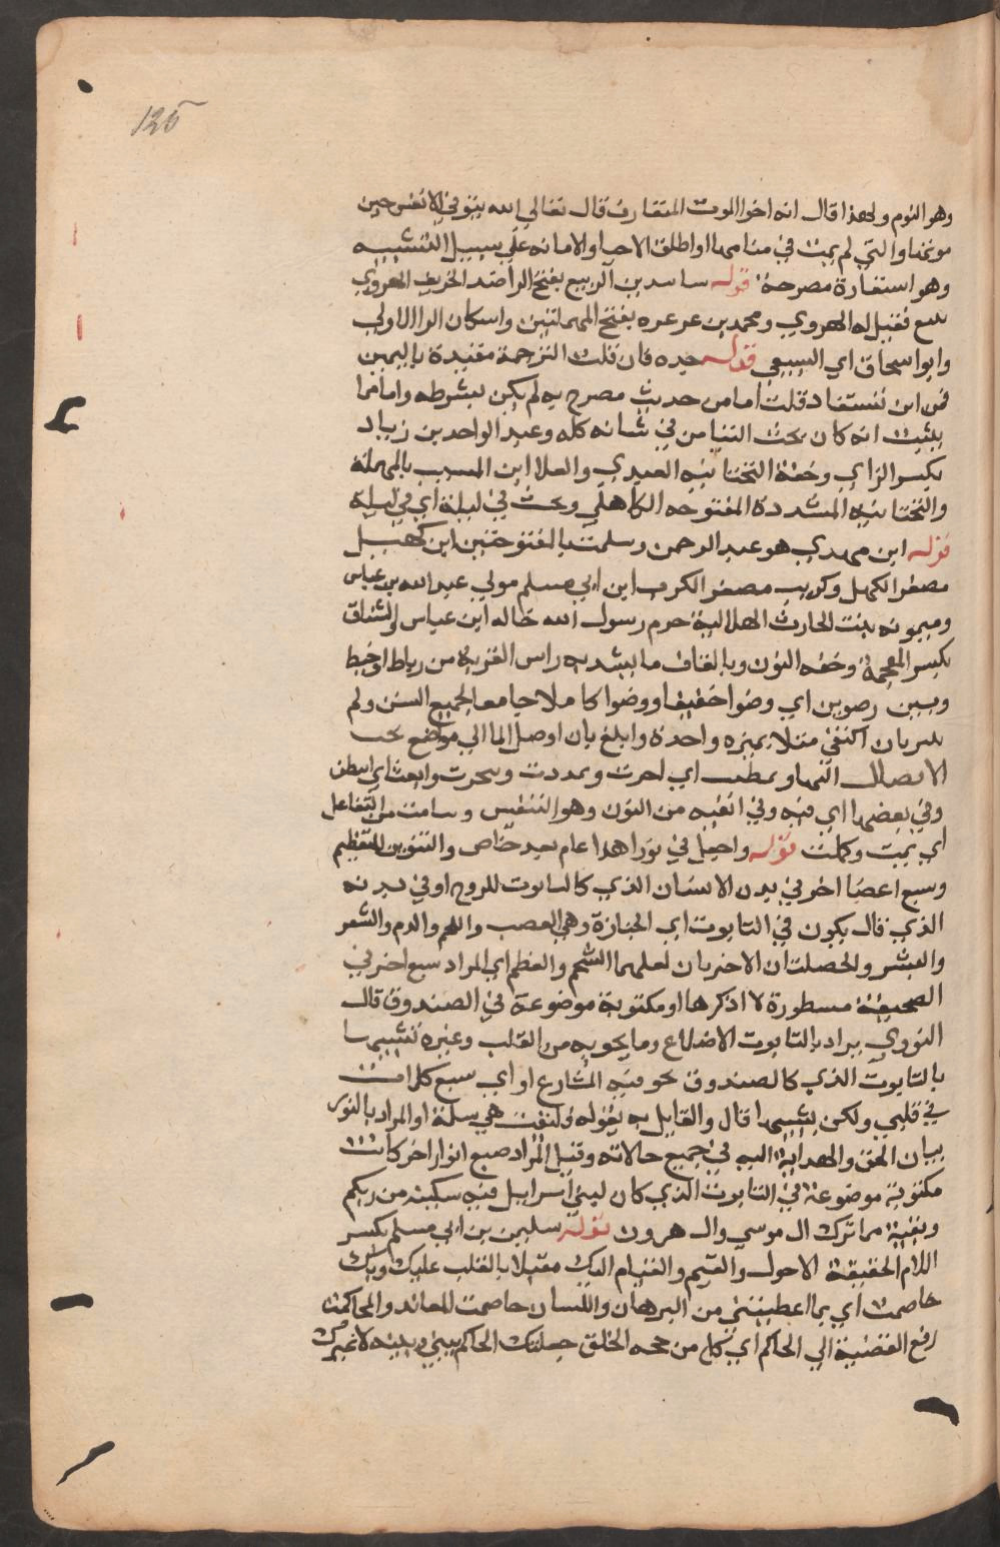 125
وهو النوم ولهذا قال انه اخو الموت المتعارف قال تعالي الله يتوفي الانفس حين
موتها والتي لم يمت في منامها او اطلق الاحيا والاماته علي سبيل التشبيه
وهو استعارة مصرحة قوله بن الربيع بفتح الرا ضد الخريف الهروي
سع فقيل له الهروي ومحمد بن عرعره بفتح المهملتين واسكان الرا الاولي
وابو اسحاق اي السبيعي قوله حده فان قلت الترجمة مقيدة باليمين
فمن اين تستفاد قلت اما من حديث مصرح به لم يكن بشرطه واما مما
يثبت انه كان يحب التيامن في شانه كله وعبد الواحد بن زياد
بكسر الزاي وخفة التحتانيه العبدي والعلا ابن المسيب بالمهملة
والتحتانيه المشددة المفتوحه الكاهلي وتحت في ليلة اي في ليله
قوله ابن مهدي هو عبد الرحمن وسلمة بالمفتوحتين ابن كهيل
مصغر الكهل وكريب مصغر الكرب ابن ابي مسلم مولي عبد الله بن عباس
وميمونه بنت الحارث الهلالية حرم رسول الله خاله ابن عباس والشناق
بكسر المعجمة وخفه النون وبالقاف ما يشد به راس القربة من رباط او خيط
وبين وضوين اي وضوا خفيفا ووضوا كاملا جامعا لجميع السنن ولم
بان اكتفي مثلا بمره واحدة وابلغ بان اوصل الما الي مواضع يجب
الايصال اليها و اي وتمددت
وفي بعضها اي فيه وفي انقبه من النون وهو التنقيب وتتامت من التفاعل
اي تمت وكملت قوله واجعل في نورا هذا عام بعد خاص والتنوين للتعظيم
وسبع اعضا اخر في بدن الانسان الذي كالتابوت للروح او في بدنه
الذي قال يكون في التابوت اي الجنازة وهي العصب واللحم والدم والشعر
والبشر والخصلتان الاخريان لعلهما الشحم والعظم اي المراد سبع اخر في
الصحيفة مسطورة لا اذكرها او مكتوبة موضوعة في الصندوق قال
النووي يراد بالتابوت الاضلاع وما يحويه من القلب وغيره تشبيها
بالتابوت الذي كالصندوق يحو فيه المتاع او اي سبع كلمات
في قلبي ولكن نسيتها قال والقايل به بقوله فلقيت هي سلمة او المراد بالنور
بيان الحق والهداية اليه في جميع حالاته وقيل المراد سبع انوار اخر كانت
مكتوبة موضوعة في التابوت الذي كان لبني اسراييل فيه سكينة من ربكم
وبقية مما ترك ال موسي وال هرون قوله سليمن بن ابي مسلم بكسر
اللام الخفيفة الاحول والقيم والقيام اليك مقبلا بالقلب عليك وبك
خاصمت اي بما اعطيتني من البرهان واللسان خاصمت المعاند والمحاكمة
رفع القضية الي الحاكم اي كل من جحد الحق جعلتك الحاكم بيني وبينه لا غيرك